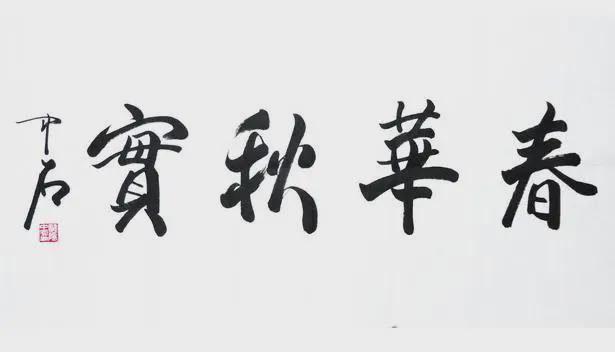 春華秋實
中石